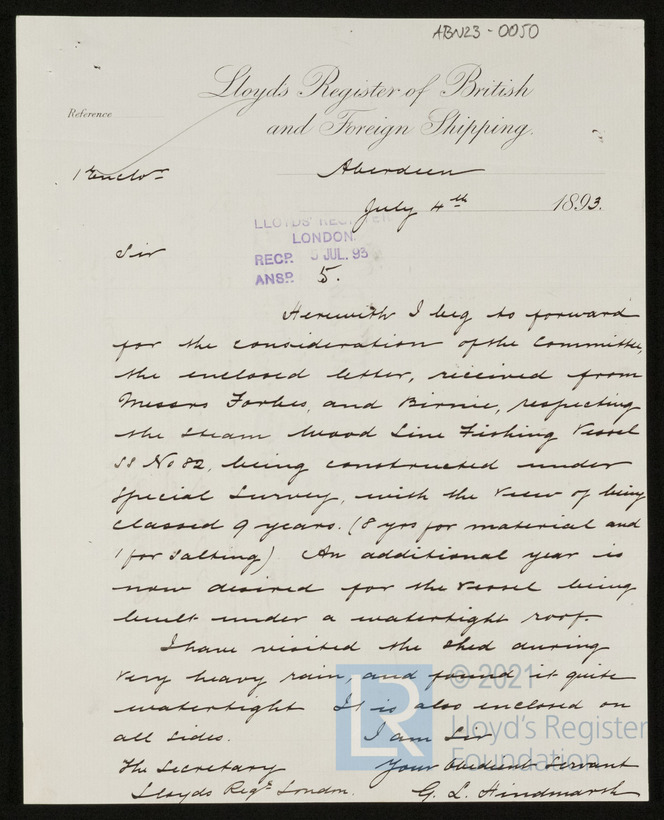 ABN23-0050
Lloyds Register of British
and Foreign Shipping.
Reference
1 Enclo.r
Aberdeen
July 4th 1893.
LLOYDS REGISTER
LONDON
RECD. 5 JUL. 93
ANSD. 5.
Sir
Herewith I beg to forward
for the consideration of the Committee,
the enclosed letter, received from
Messrs Forbes, and Birnie, respecting
the Steam Wood Line Fishing Vessel
SS No 82, being constructed under
Special Survey, with the view of being
classed 9 years. (8 yrs for material and
1 for salting). An additional year is
now desired for the vessel being
built under a watertight roof.
I have visited the shed during
very heavy rain, and found it quite
watertight It is also enclosed on
all sides. I am Sir
The Secretary Your Obedient Servant
Lloyds Regr. London. G. L. Hindmarsh
LR
© 2021
Lloyd's Register
Foundation